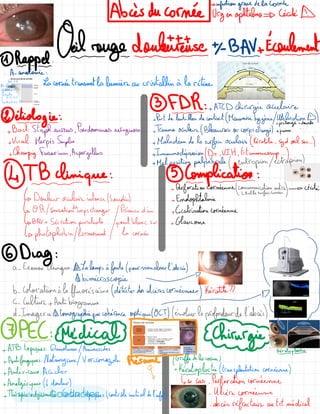 Abcès du cornée
infection grave de la cornée
Urg en ophtalmo => Cécité
Œil rouge douloureuse +++ +/- BAV + Écoulement
① Rappel
A. anatomie:
La cornée transmet la lumière au cristallin à la rétine
② étiologie:
- Bact: Staph aureus, Pseudomonas
- Viral: Herpès Simplex
- Champig: Fusarium, Aspergillus
③ FDR:
- ATCD chirurgie oculaire
- Port de lentilles de contact (Mauvaise hygiène/
- Trauma oculaire (Blessures ou corps étrangers)
- Maladies de la surface oculaire (Kératite, syd
- Immunodépression (D, VIH, Immunosupp)
- Malposition palpébrale (entropion/ectropion)
④ TB clinique:
Douleur oculaire intense
Rougeur
BAV + Sécrétion purulente
photophobie/larmoiement
la cornée
⑤ Complication:
- Perforation cornéenne => cécité
- Endophtalmie
- Cicatrisation cornéenne
- Glaucome
⑥ Diag:
a. Examen clinique: La lampe à fente (pour visualiser l'abcès)
biomicroscopie
b. coloration à la fluorescéine (détecter des ulcères cornéennes) Kératite!!
c. Culture + Antibiogramme
d. Imagerie: tomographie par cohérence optique (OCT) (évaluer la profondeur de l'abcès)
⑦ PEC:
Médical
Chirurgie
- ATB topiques:
- Antifongiques: Natamycine/Voriconazole
- Antiviraux: Aciclovir
- Analgésiques (↓ douleur)
Résumé
(Greffe de la cornée)
- Kératoplastie (transplantation cornéenne)
le cas: - Perforation cornéenne
- Ulcère cornéenne
- abcès réfractaire au ttt médical
Kératoplastie